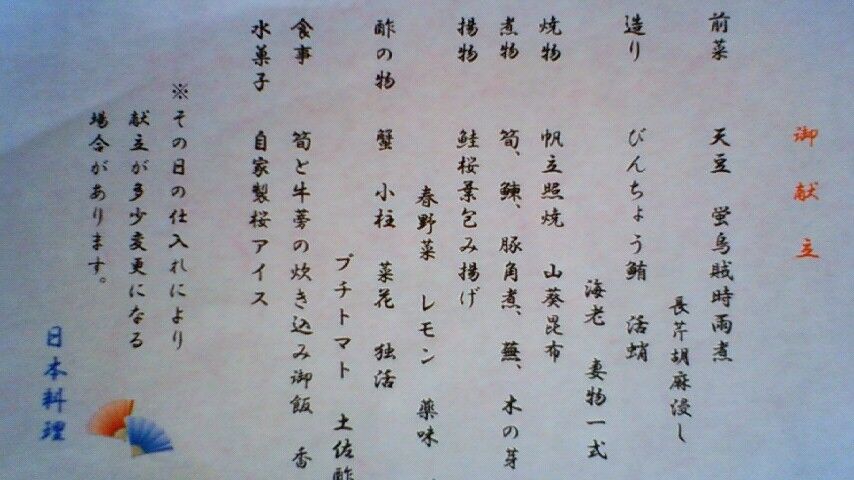 御献立
前菜 天豆 蛍烏賊時雨煮
長芹胡麻浸し
造り びんちょう鮪 活蛸
海老 妻物一式
焼物 帆立照焼 山葵昆布
煮物 筍、鰊、豚角煮、蕪、木の芽
揚物 鮭桜葉包み揚げ
春野菜 レモン 薬味
酢の物 蟹 小柱 菜花 独活
プチトマト 土佐酢
食事 筍と牛蒡の炊き込み御飯 香
水菓子 自家製桜アイス
※その日の仕入れにより
献立が多少変更になる
場合があります。
日本料理